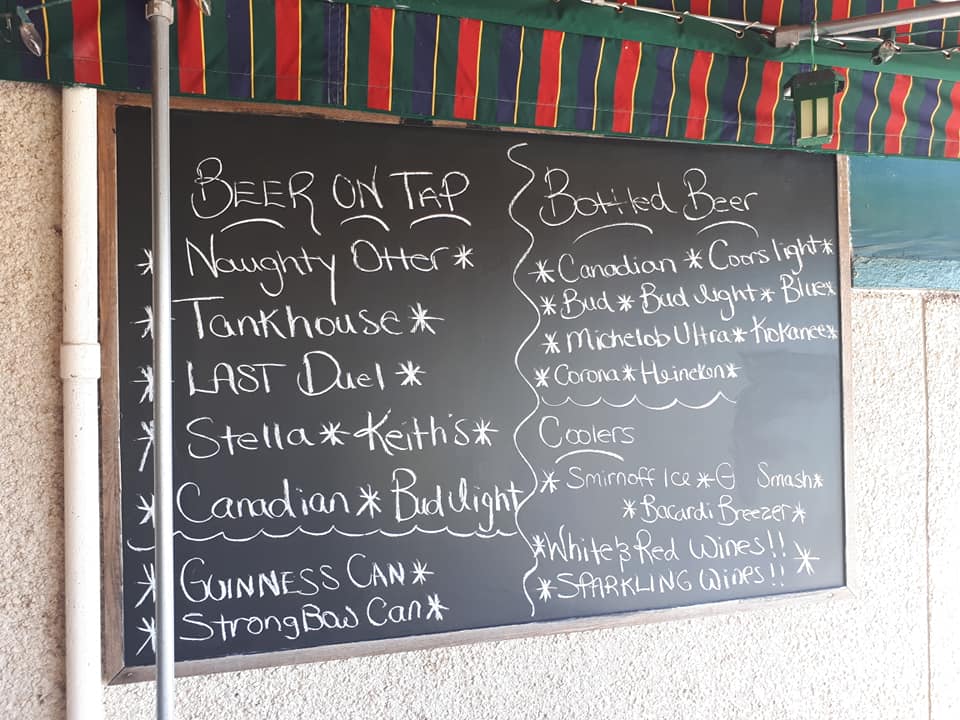 BEER ON TAP
* Naughty Otter *
* Tankhouse *
* LAST Duel *
* Stella * Keith's *
* Canadian * Bud light
* GUINNESS CAN *
* StrongBow Can *
Bottled Beer
* Canadian * Coors light *
* Bud * Bud light * Blue *
* Michelob Ultra * Kokanee *
* Corona * Heineken *
Coolers
* Smirnoff Ice * Smash *
* Bacardi Breezer *
* White & Red Wines!! *
* SPARKLING Wines!!